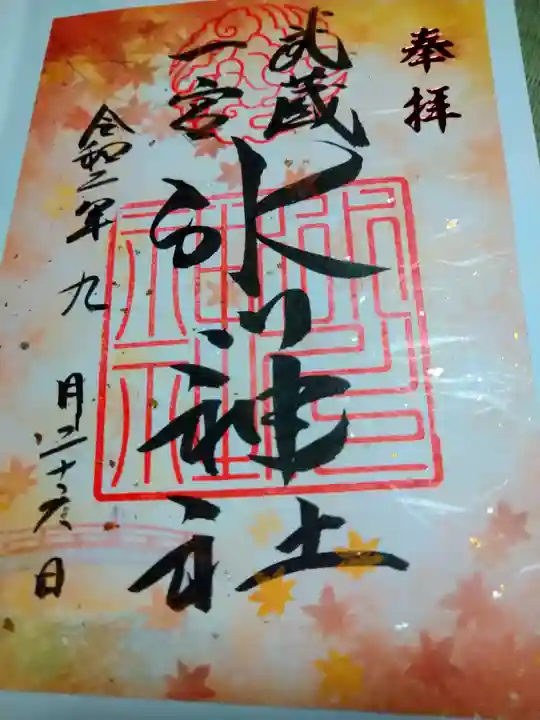 奉拝
武蔵
一宮
氷川神社
令和二年九月二十六日